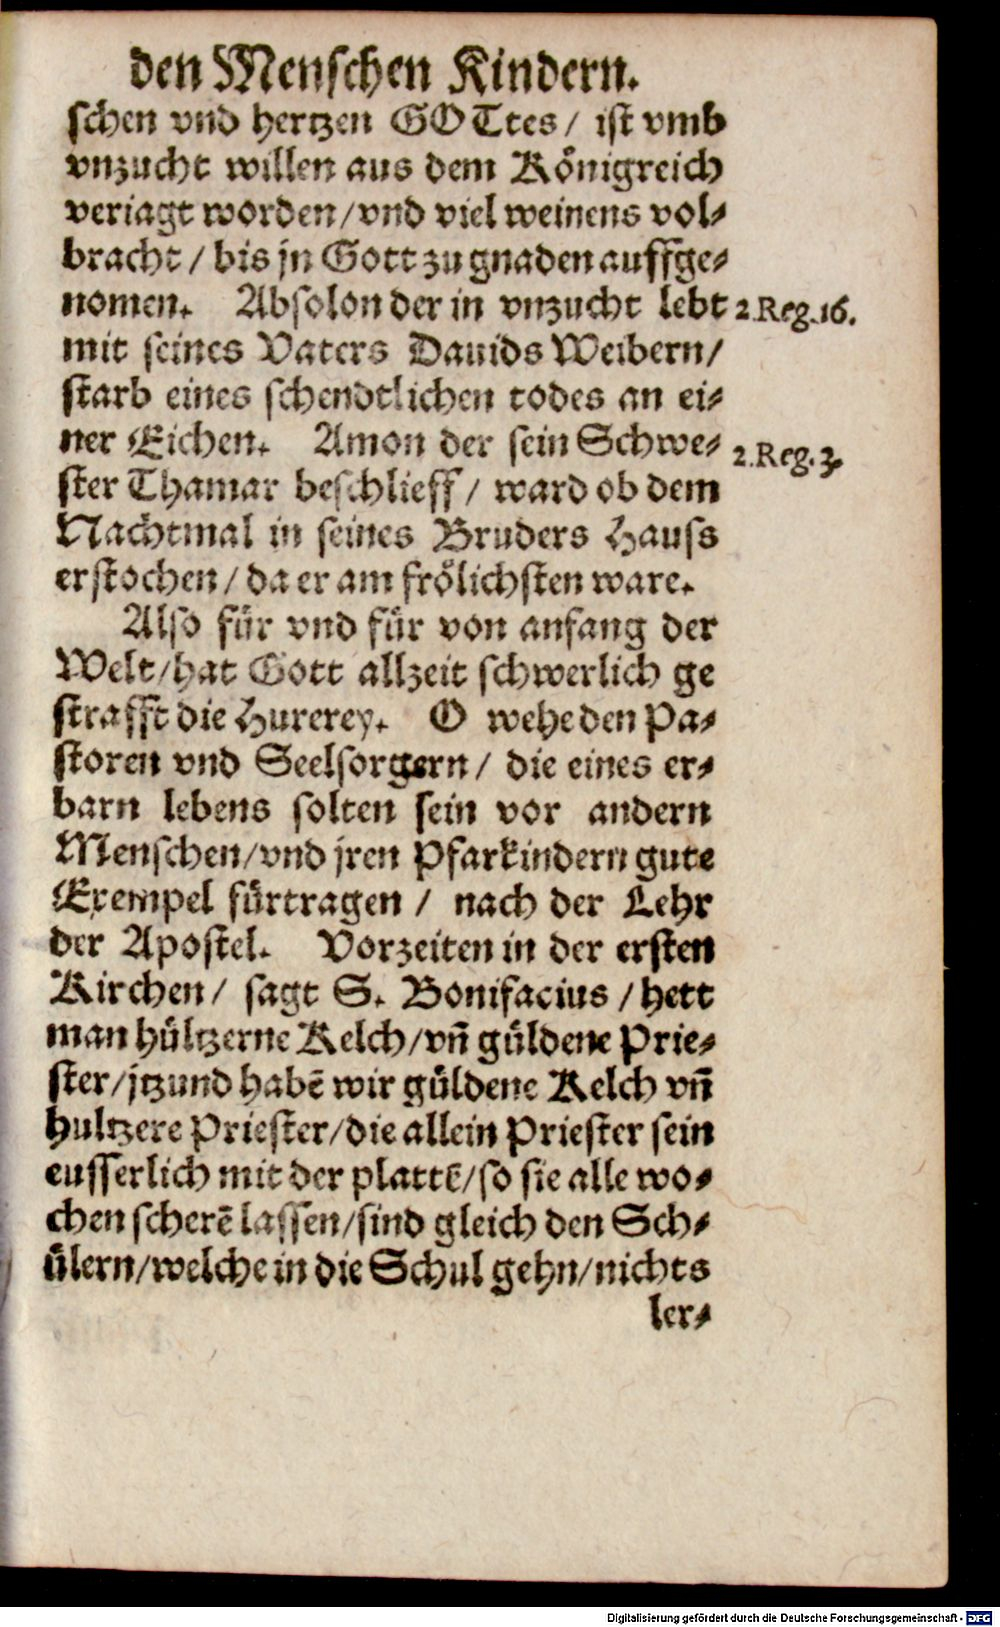 den Menschen Kindern.
schen vnd hertzen GOTtes / ist vmb
vnzucht willen aus dem Königreich
veriagt worden / vnd viel weinens vol-
bracht / bis jn Gott zu gnaden auffge-
nomen. Absolon der in vnzucht lebt
2. Reg. 16.
mit seines Vaters Dauids Weibern /
starb eines schendtlichen todes an ei-
ner Eichen. Amon der sein Schwe-
2. Reg. 3.
ster Thamar beschlieff / ward ob dem
Nachtmal in seines Bruders Hauss
erstochen / da er am frölichsten ware.
Also für vnd für von anfang der
Welt / hat Gott allzeit schwerlich ge
strafft die Hurerey. O wehe den Pa-
storen vnd Seelsorgern / die eines er-
barn lebens solten sein vor andern
Menschen / vnd jren Pfarkindern gute
Exempel fürtragen / nach der Lehr
der Apostel. Vorzeiten in der ersten
Kirchen / sagt S. Bonifacius / hett
man hültzerne Kelch / vñ güldene Prie-
ster / jtzund habē wir güldene Kelch vñ
hultzere Priester / die allein Priester sein
eusserlich mit der plattē / so sie alle wo-
chen scherē lassen / sind gleich den Sch-
ülern / welche in die Schul gehn / nichts
ler-
Digitalisierung gefördert durch die Deutsche Forschungsgemeinschaft - DFG